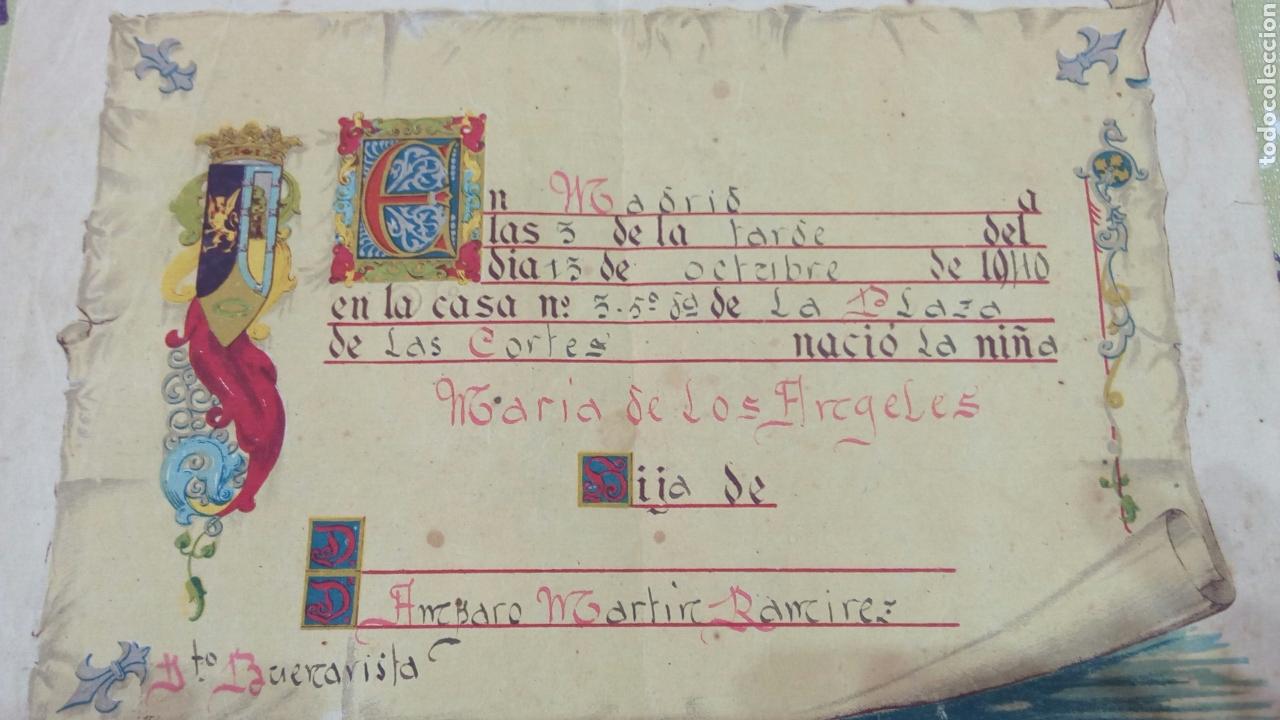 En Madrid a
las 3 de la tarde del
dia 13 de octubre de 1940
en la casa nº. 3-5º dª de La Plaza
de Las Cortes nació La niña
Maria de Los Angeles
Hija de
D
D Amparo Martin Ramirez
Dto Buenavista
todocoleccion